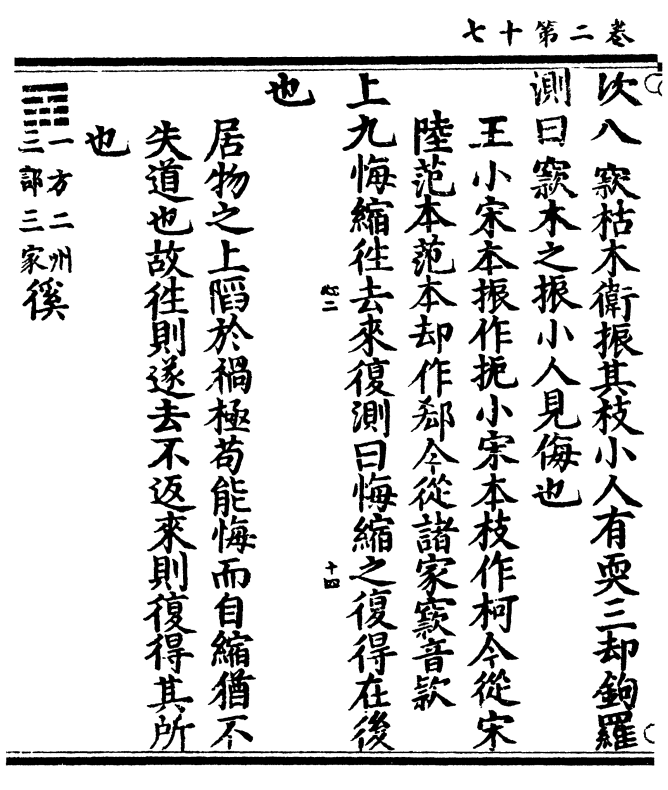 卷二第十七
次八窾枯木衛振其枝小人有耎三却鉤羅
測曰窾木之振小人見侮也
王小宋本振作扼小宋本枝作柯今從宋
陸范本范本却作郄今從諸家窾音款
上九悔縮徃去來復測曰悔縮之復得在後
心二
十四
也
居物之上陷於禍極苟能悔而自縮猶不
失道也故徃則遂去不返來則復得其所
也
一方二州
三部三家
徯